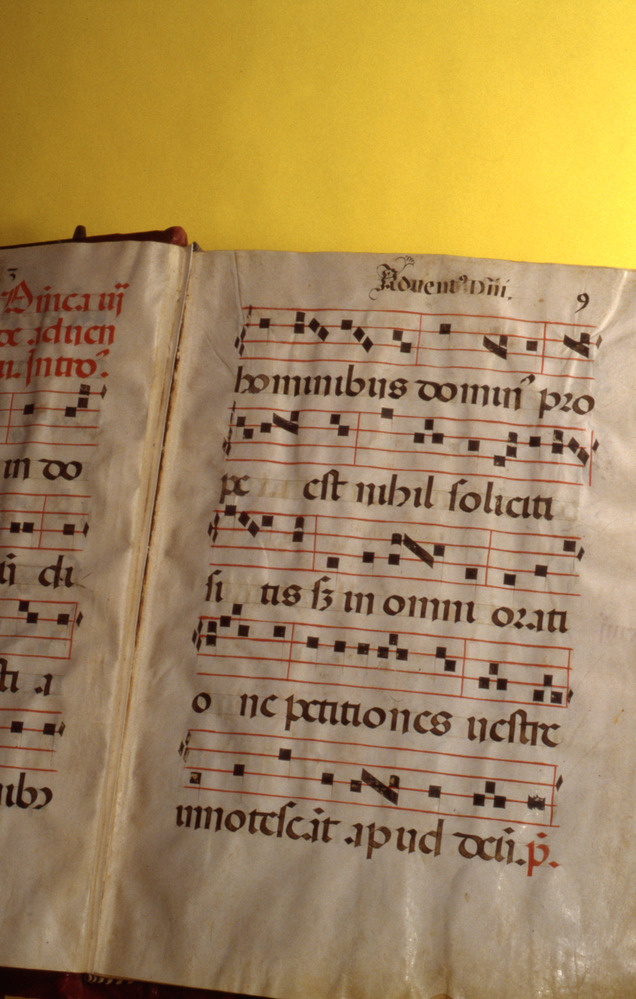 3
Dn̄ica iij
de aduen
tu. Intro⁹.
in do
di
sti .a
nibꝫ
Aduent⁹ Dn̄i.
9
hominibus domin⁹ pro
pe est nihil soliciti
si tis sꝫ in omni orati
o ne petitiones uestre
innotesc.āt .apud deū. p̄.